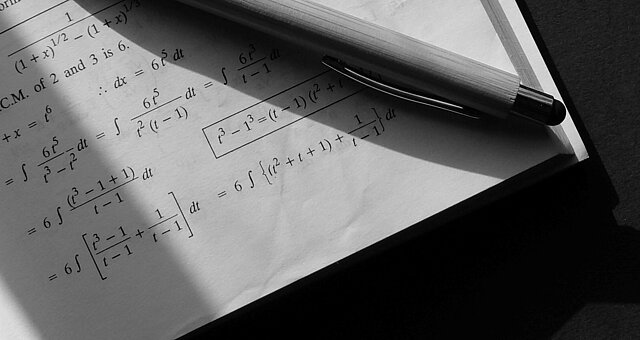 1
(1 + x)^{1/2} − (1 + x)^{1/3}
C.M. of 2 and 3 is 6.
+ x = t^6 ∴ dx = 6t^5 dt
= ∫ \frac{6t^5}{t^3 − t^2} dt = ∫ \frac{6t^5}{t^2 (t − 1)} dt = ∫ \frac{6t^3}{t − 1} dt
= 6 ∫ \frac{(t^3 − 1 + 1)}{t − 1} dt
t^3 − 1^3 = (t − 1) (t^2 + t
= 6 ∫ [\frac{t^3 − 1}{t − 1} + \frac{1}{t − 1}] dt = 6 ∫ {(t^2 + t + 1) + \frac{1}{t − 1}} dt